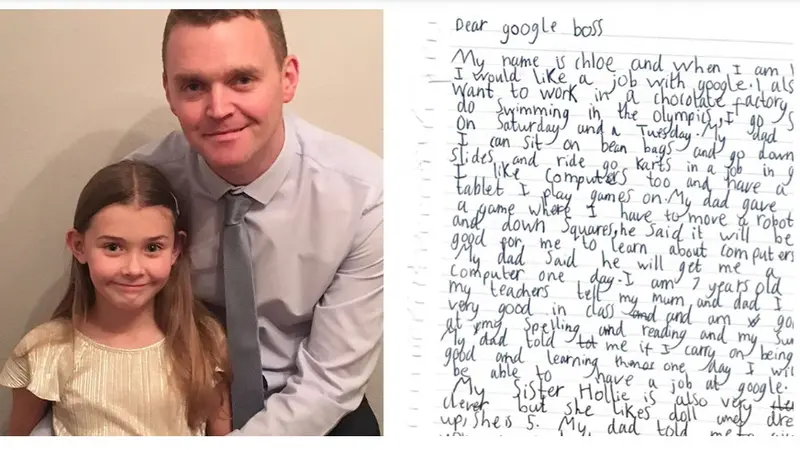 Dear google boss
My name is chloe and when I am
I would like a job with google. I als
want to work in a chocolate factory
do swimming in the olympics, I go s
on Saturday and a Tuesday. My dad
I can sit on bean bags and go down
slides and ride go karts in a job in g
I like computers too and have a
tablet I play games on. My dad gave
a game where I have to move a robot
and down squares, he said it will be
good for me to learn about computers
My dad said he will get me a
computer one day. I am 7 years old
my teachers tell my mum and dad I
very good in class and am go
at my spelling and reading and my sum
My dad told me if I carry on being
good and learning one day I wil
be able to have a job at google.
My sister Hollie is also very
clever but she likes doll and dre
up, she is 5. My dad told me